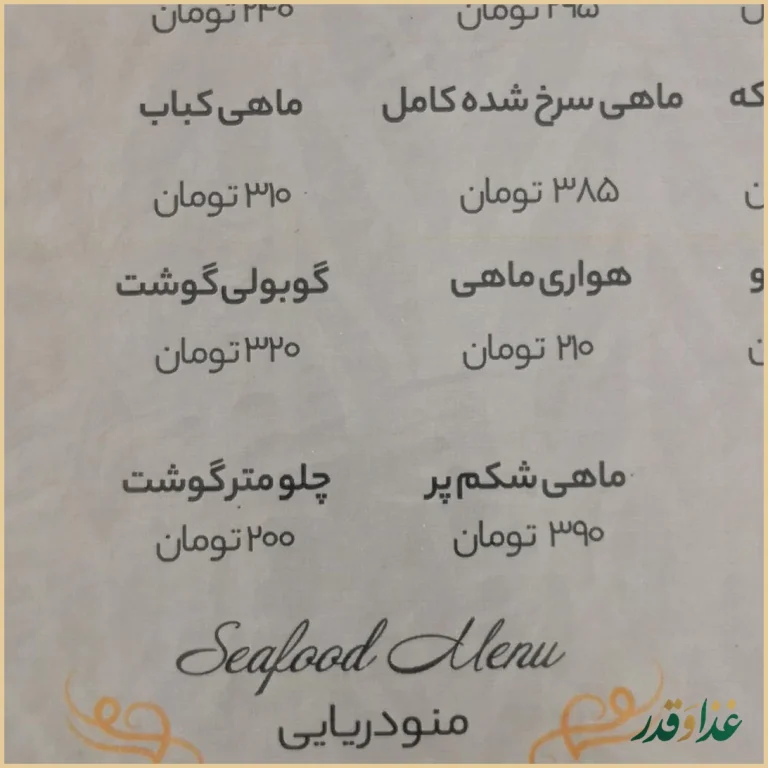 ۲۹۵ تومان ۲۴۰ تومان
که ماهی سرخ شده کامل ماهی کباب
۳۸۵ تومان ۳۱۰ تومان
و هواری ماهی گوبولی گوشت
۲۱۰ تومان ۳۲۰ تومان
ماهی شکم پر چلو متر گوشت
۳۹۰ تومان ۲۰۰ تومان
Seafood Menu
منو دریایی
غذا و قدر